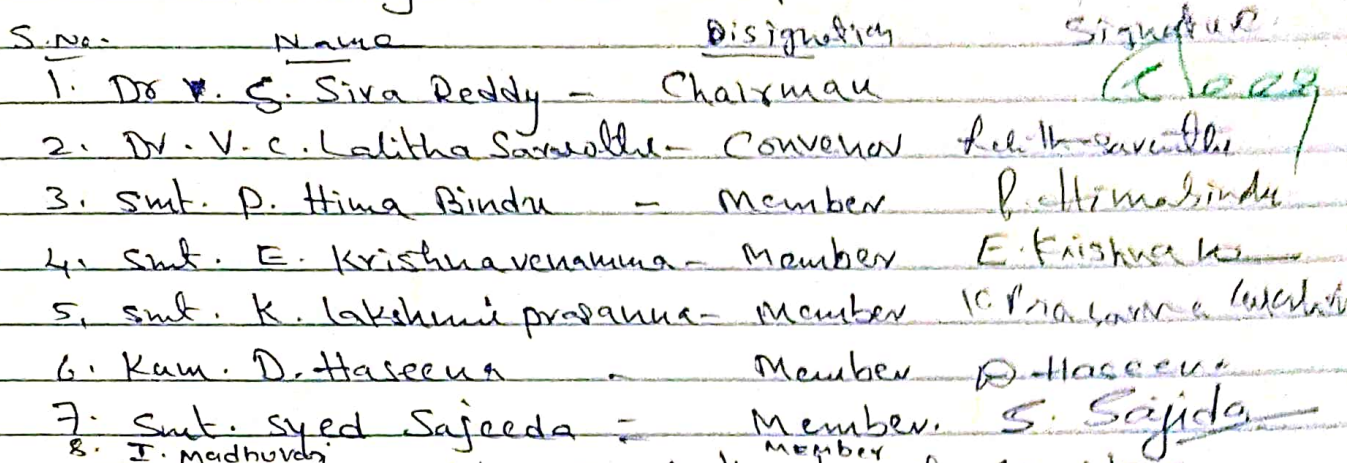 S.No. Name Disignation Signature
1. Dr V. S. Siva Reddy - Chairman
2. Dr. V. C. Lalitha - Convenor
3. Smt. P. Hima Bindu - Member P. Himabindu
4. Smt. E. Krishnavenamma - Member E. Krishna
5. Smt. K. Lakshmi prasanna - Member K Prasanna
6. Kum. D. Haseena - Member D. Haseena
7. Smt. Syed Sajeeda - Member. S. Sajida
8. I. Madhuvani Member